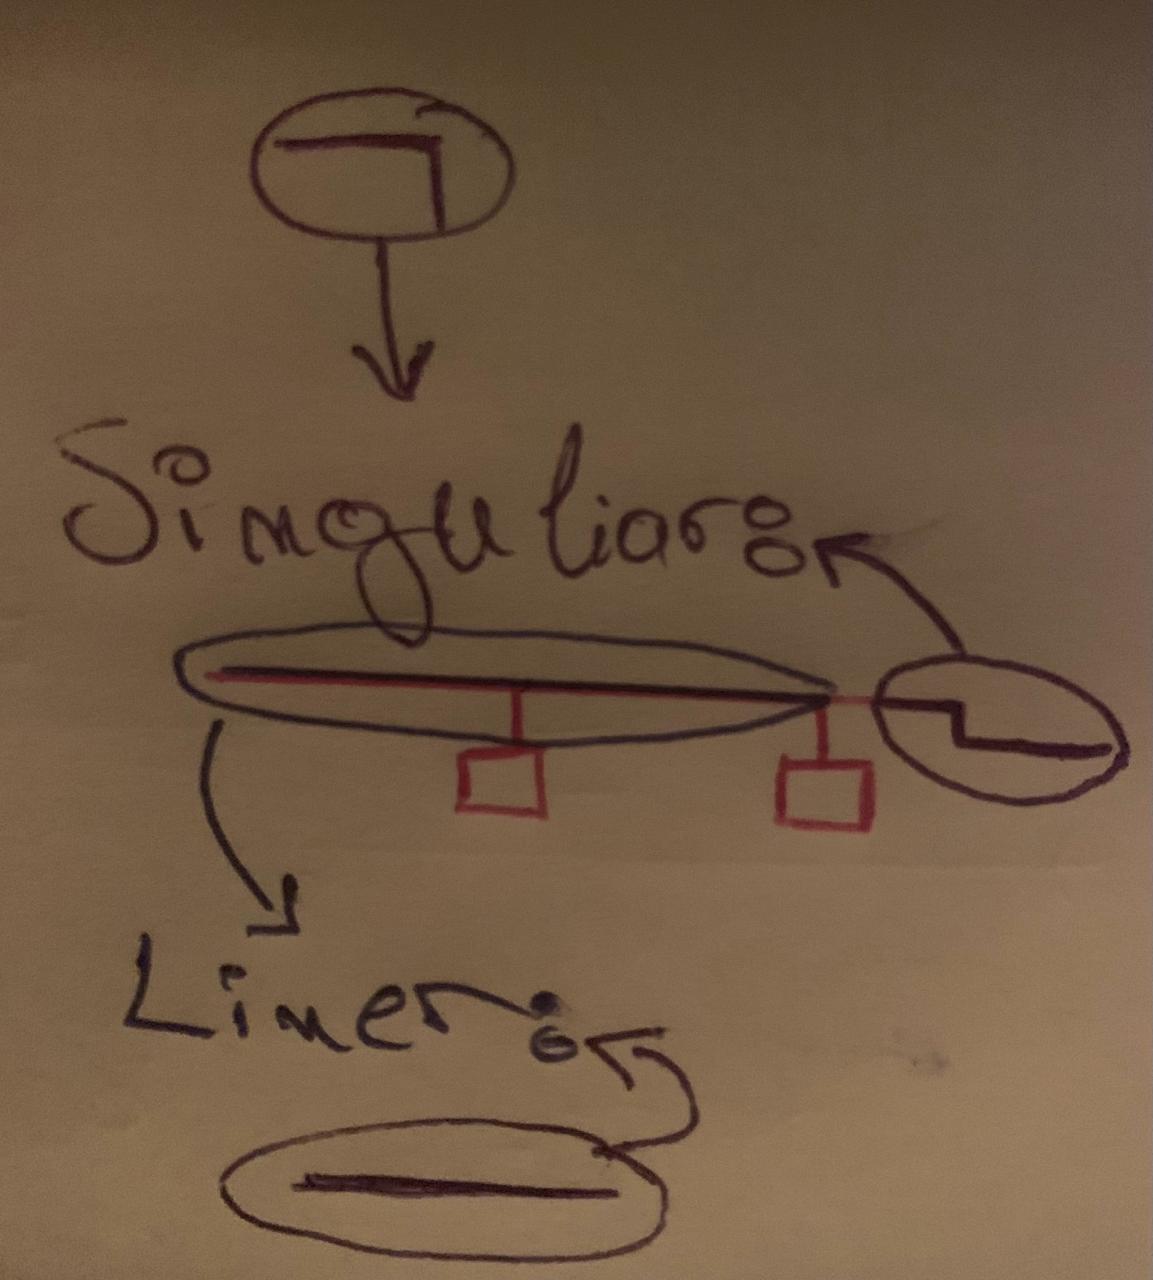 Singuliar:
Liner: